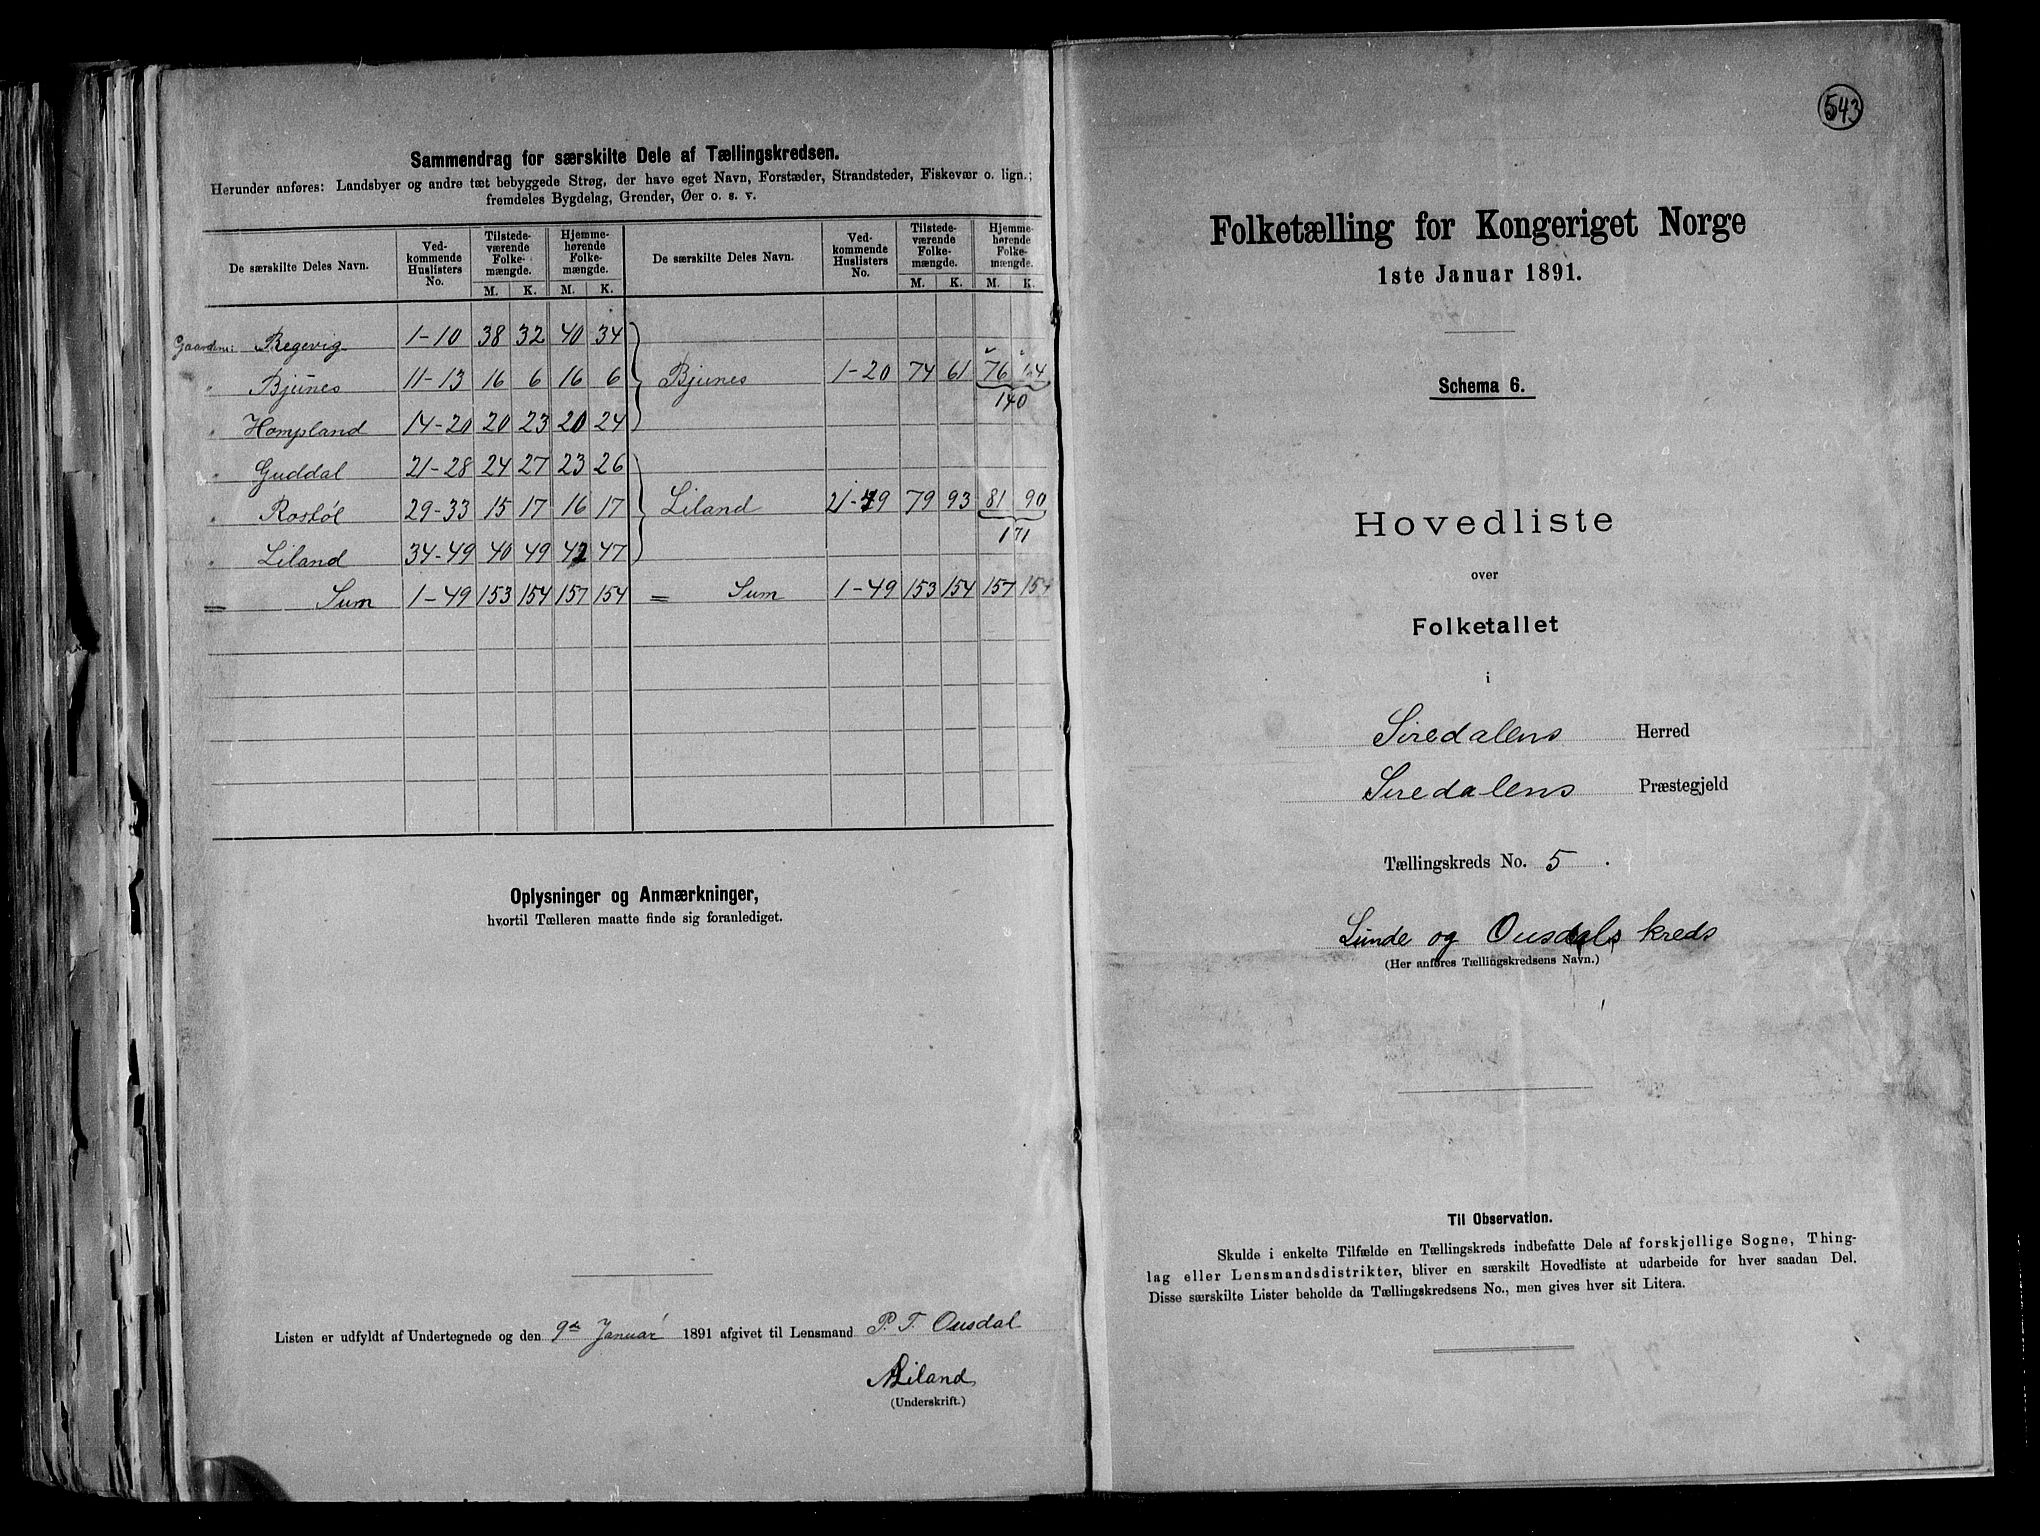 Sammendrag for særskilte Dele af Tællingskredsen.
Herunder anføres: Landsbyer og andre tæt bebyggede Strøg, der have eget Navn, Forstæder, Strandsteder, Fiskevær o. lign.;
fremdeles Bygdelag, Grender, Øer o. s. v.
De særskilte Deles Navn. Ved-kommende Huslisters No. Tilstede-værende Folke-mængde. Hjemme-hørende Folke-mængde. De særskilte Deles Navn. Ved-kommende Huslisters No. Tilstede-værende Folke-mængde. Hjemme-hørende Folke-mængde.
M. K. M. K. M. K. M. K.
Gaardene: Regevig 1-10 38 32 40 34
" Bjunes 11-13 16 6 16 6 Bjunes 1-20 74 61 76 64
140
" Hompland 14-20 20 23 20 24
" Guddal 21-28 24 27 23 26
" Rostøl 29-33 15 17 16 17 Liland 21-49 79 93 81 90
171
" Liland 34-49 40 49 42 47
= Sum 1-49 153 154 157 154 = Sum 1-49 153 154 157 154
Oplysninger og Anmærkninger,
hvortil Tælleren maatte finde sig foranlediget.
Listen er udfyldt af Undertegnede og den 9de Januar 1891 afgivet til Lensmand P. T. Ousdal
Liland
(Underskrift.)
543
Folketælling for Kongeriget Norge
1ste Januar 1891.
Schema 6.
Hovedliste
over
Folketallet
i
Siredalens Herred
Siredalens Præstegjeld
Tællingskreds No. 5.
Lunde og Ousdals kreds
(Her anføres Tællingskredsens Navn.)
Til Observation.
Skulde i enkelte Tilfælde en Tællingskreds indbefatte Dele af forskjellige Sogne, Thing-
lag eller Lensmandsdistrikter, bliver en særskilt Hovedliste at udarbeide for hver saadan Del.
Disse særskilte Lister beholde da Tællingskredsens No., men gives hver sit Litera.